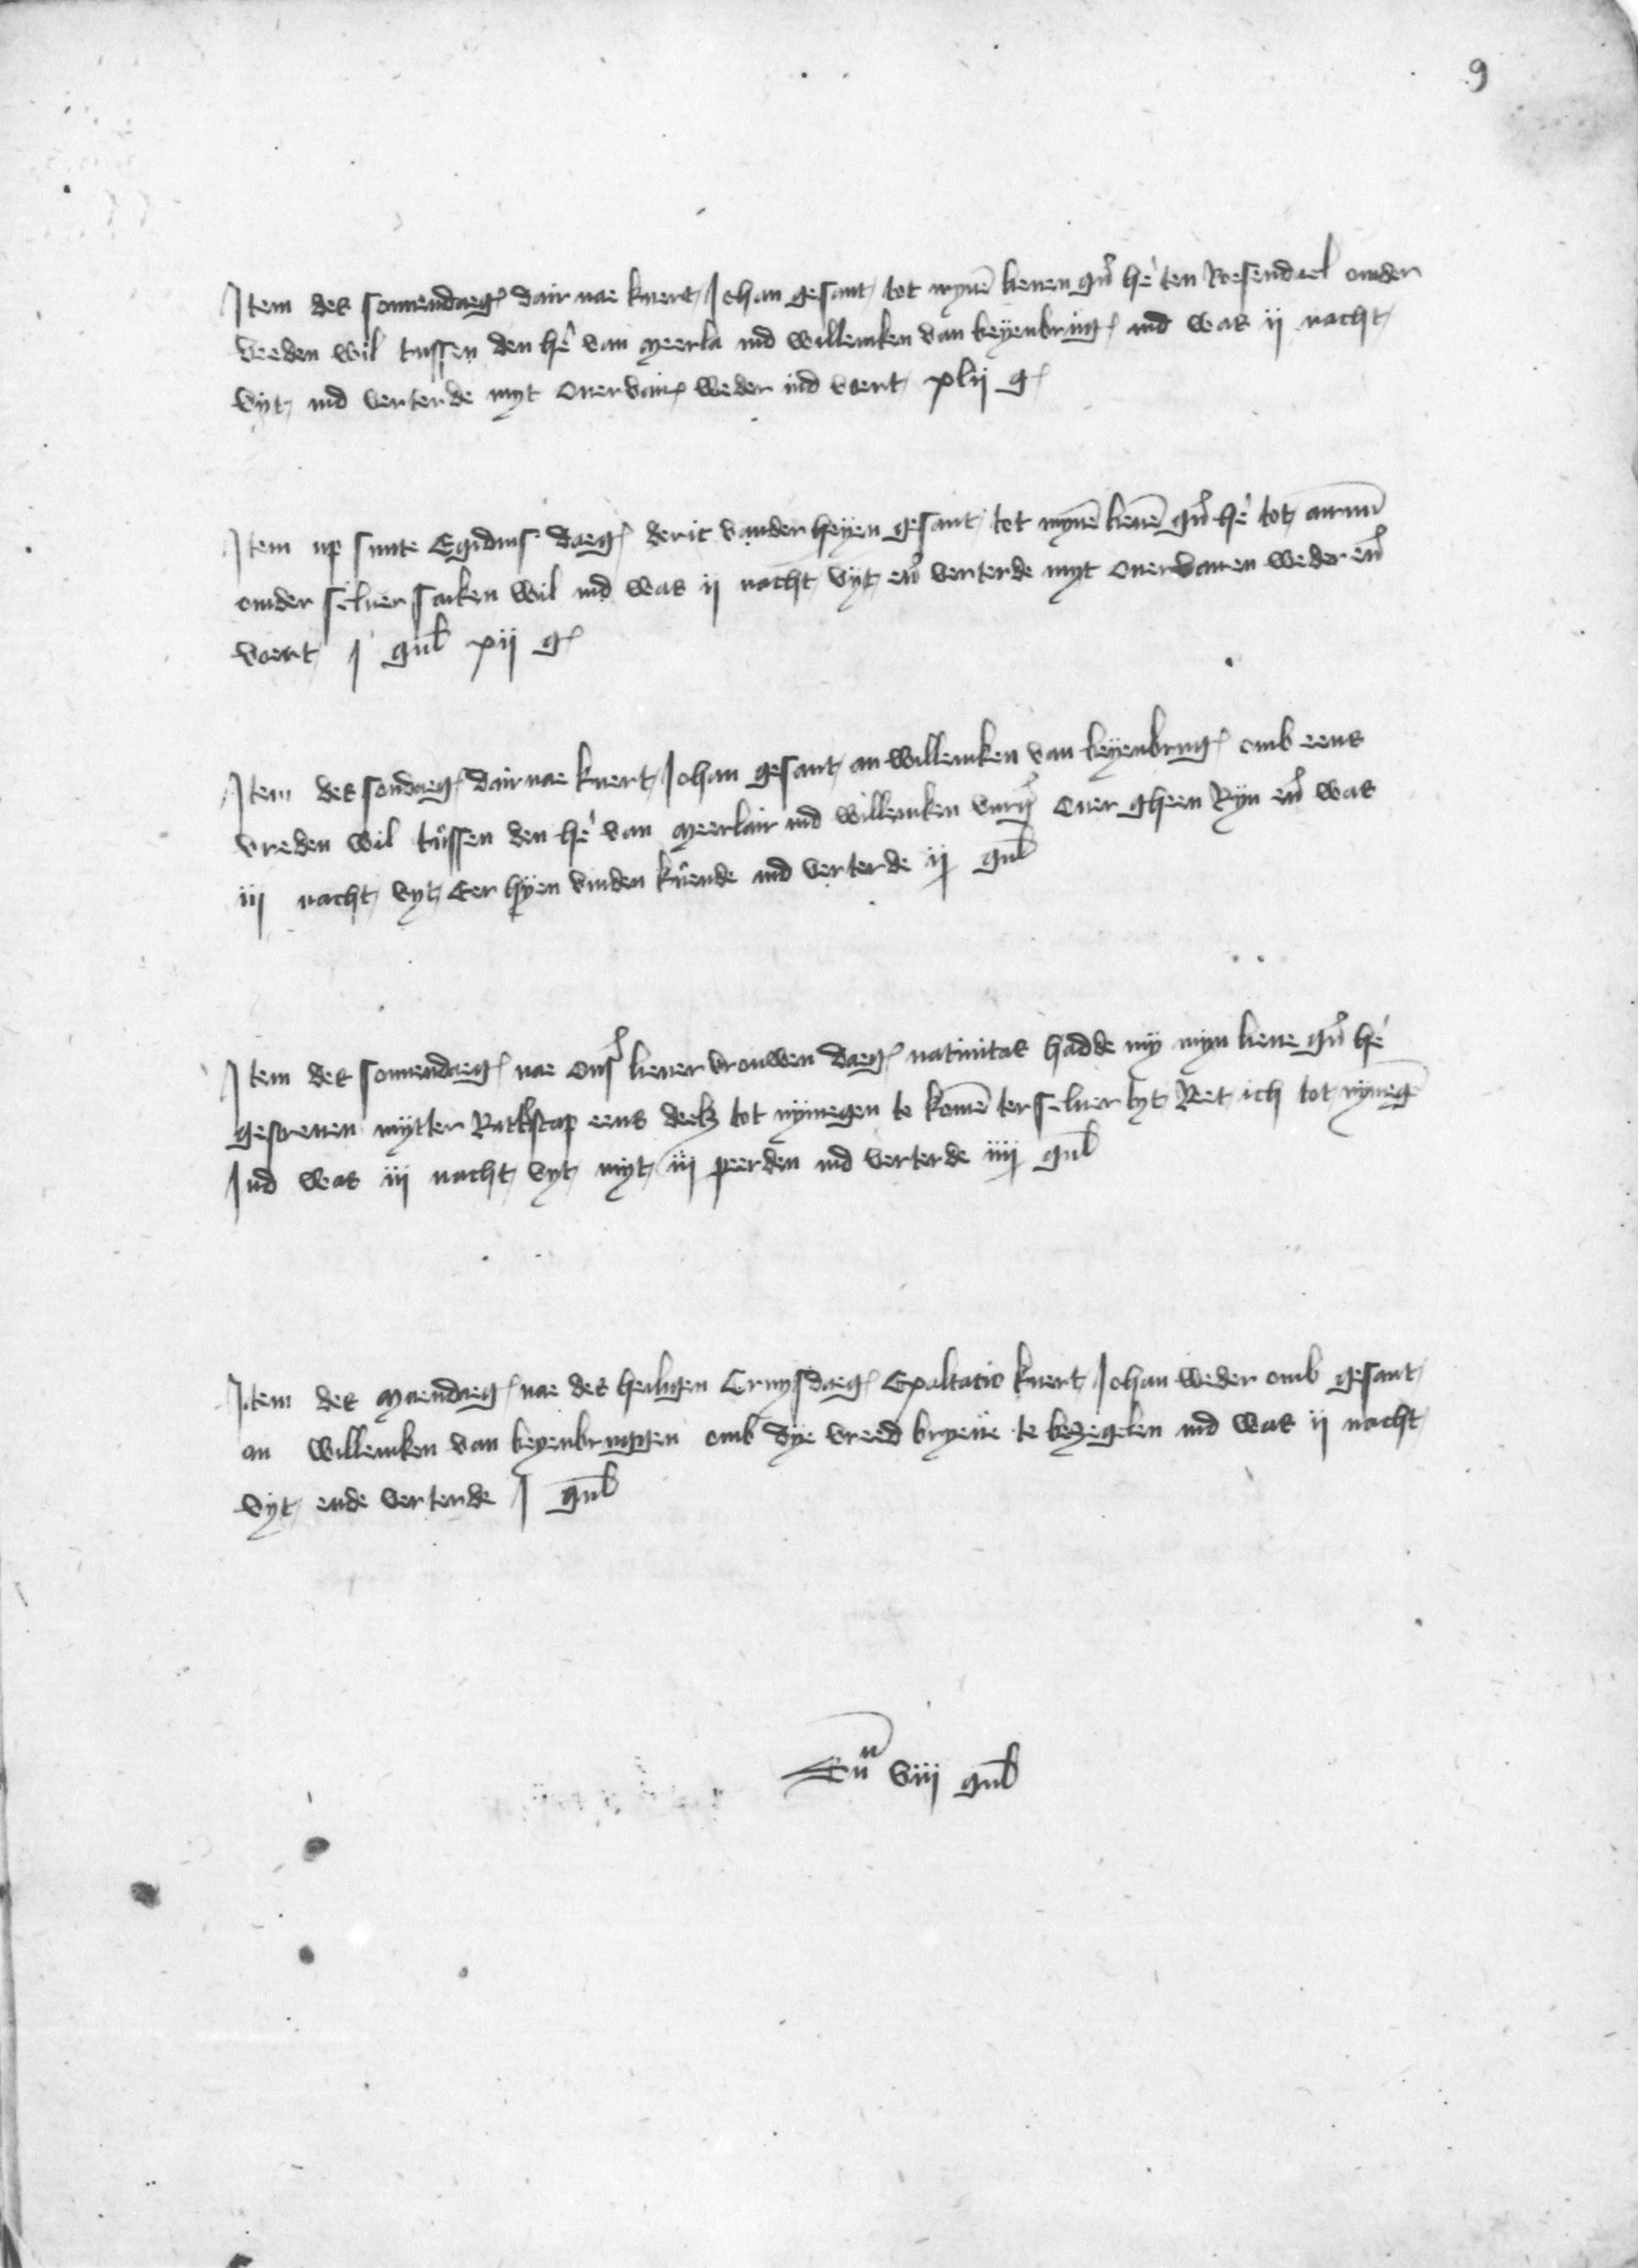 9
Item des sonnendaegs dair nae knert Johan gesant tot mynē lieuen gn̄ hē ten Rosendael omder
vreden wil tussen den hē van meerla ind willemken van beyenbrug ind was ii nacht
vyt ind verterde myt ouervair weder ind voert xlii g
Item up sunte Egidius daeg deric vander heyen gesant tot mynē lieuē gn̄ hē tot arnnū
omder seluer saiken wil ind was ii nacht vyt en̄ verterde myt oueruaren weder en̄
voert i gul xii g
Item des sondaeg dair nae knert Johan gesant an willemken van beyenbrug omb eens
vreden wil tussen den hē van meerlair ind willemken vurg ouer gheen Ryn en̄ was
iii nacht vyt eer hyen vinden kuende ind verterde ii gul
Item des sonnendaeg nae ons lieuer vrouwen daeg natiuitas hadde my myn lieue gn̄ hē
gescreuen mytter Ratscap eens deels tot nymegen te komē ter seluer tyt Reet ich tot nymegē
Ind was iii nacht vyt myt iii peerden ind verterde iiii gul
Item des maendaeg nae des heiligen Cruysdaeg Exaltatio knert Johan weder omb gesant
an willemken van beyenbruggen omb dye vreed bryeue te bezegelen ind was ii nacht
vyt ende verterde i gul
Sū viii gul